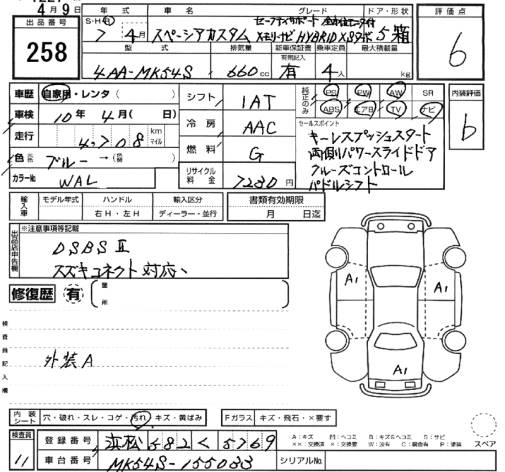 4月9日
出品番号 258
年式 車名 グレード ドア・形状
S・H・R 7年 4月 スペーシアカスタム HYBRID XSターボ 5 箱
型式 排気量 新車保証書 乗車定員 最大積載量
有用記入
4AA-MK54S 660cc 有 4人 kg
評価点 6
車歴 自家用・レンタ( )
車検 10年 4月( 日)
走行 4,708 km マイル
色 ブルー →( )
カラーNo. WAL
シフト IAT
冷房 AAC
燃料 G
リサイクル料金 7280円
純正のみ PS PW AW SR
ABS エアB TV ナビ
セールスポイント
キーレスプッシュスタート
両側パワースライドドア
クルーズコントロール
パドルシフト
内装評価 b
輸入車 モデル年式 ハンドル 輸入区分
右H・左H ディーラー・並行
書類有効期限
月 日迄
出品店申告欄 ※注意事項等記載
DSBS Ⅱ
スズキコネクト対応、
修復歴 有 箇所
検査員記入欄
外装A
A1
A1
A1
内装シート 穴・破れ・スレ・コゲ・汚れ・キズ・黄ばみ
Fガラス キズ・飛石・×要す
検査員 11
登録番号 浜松 582 く 5769
車台番号 MK54S-155033
シリアルNo.
A:キズ
スペア